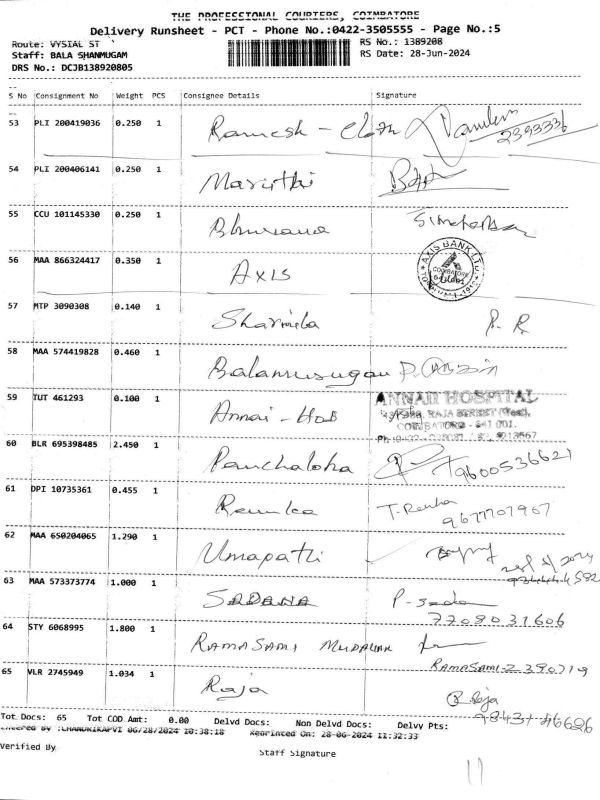 THE PROFESSIONAL COURIERS, COIMBATORE
Delivery Runsheet - PCT - Phone No.:0422-3505555 - Page No.:5
Route: VYSIAL ST RS No.: 1389208
Staff: BALA SHANMUGAM RS Date: 28-Jun-2024
DRS No.: DCJB138920805
S No Consignment No Weight PCS Consignee Details Signature
53 PLI 200419036 0.250 1 Ramesh - cloth 2393336
54 PLI 200406141 0.250 1 Maruthi
55 CCU 101145330 0.250 1 Bhuvana
56 MAA 866324417 0.350 1 AXIS AXIS BANK LTD COIMBATORE
57 MTP 3090308 0.140 1 Sharmila P. R
58 MAA 574419828 0.460 1 Balamurugan P.
59 TUT 461293 0.100 1 Annai - Hos ANNAII HOSPITAL
RAJA STREET (West),
COIMBATORE - 641 001.
60 BLR 695398485 2.450 1 Panchaloha 9600536621
61 DPI 10735361 0.455 1 Renuka T. Renka
9677707967
62 MAA 650204065 1.290 1 Umapathi
63 MAA 573373774 1.000 1 SADANA P-
7708031606
64 STY 6068995 1.800 1 RAMASAMI MUDALIAR
RAMASAMI-2390719
65 VLR 2745949 1.034 1 Raja R Raja
9843746626
Tot Docs: 65 Tot COD Amt: 0.00 Delvd Docs: Non Delvd Docs: Delvy Pts:
Entered By :CHANDRIKAPVI 06/28/2024 10:38:18 Reprinted On: 28-06-2024 11:32:33
Verified By
Staff Signature